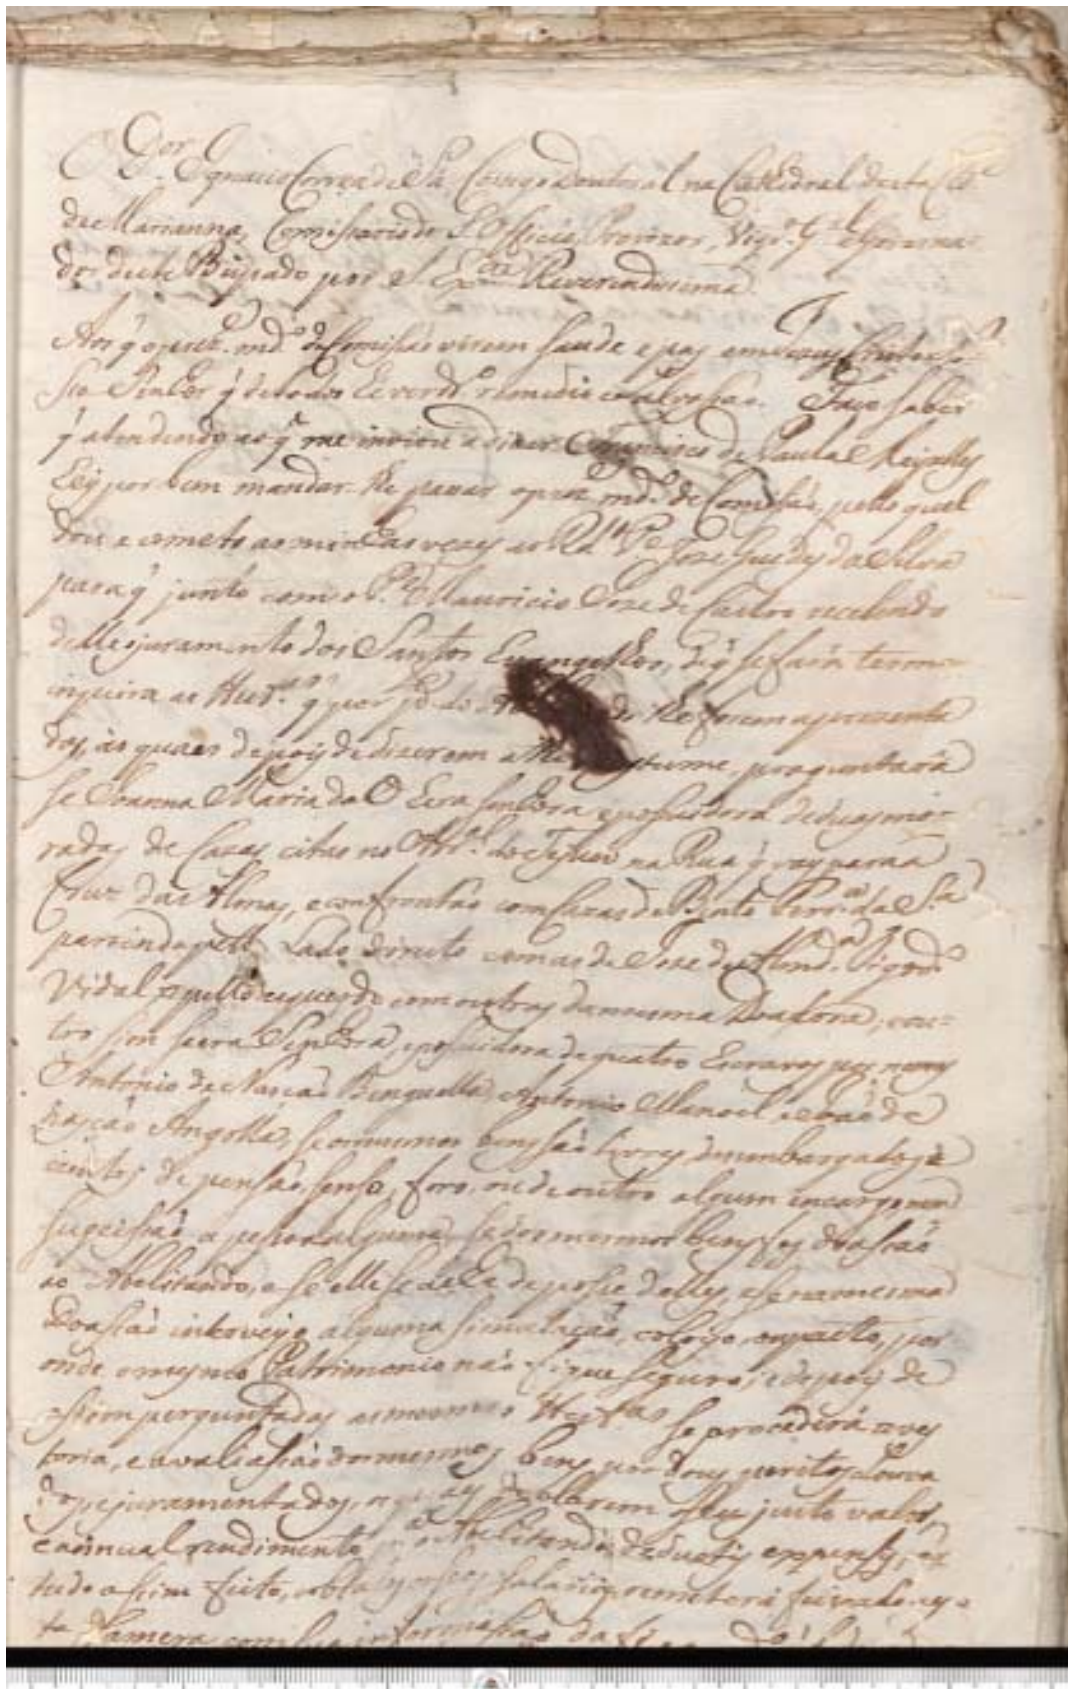 O D.or Ignacio Correa de Sá Conego Doutoral na Cathedral desta Cid.e
de Marianna, Comissario do S. Officio, Provizor, Vigr.o G.al e Governa-
dor deste Bispado por S. Ex.cia Reverendissima
Aos q o prez.te md.o de Comissão virem saude e paz em
q de todos he verd.o remedio e salvação. Faço saber
q atendendo ao q me inviou a dizer Francisco de Paula Meyrelles
Hey por bem mandar lhe passar o prez.te md.o de Comissão, pello qual
dou e cometo as minhas vezes ao Rd.o P.e Joze Guedes da Silva
para q junto com o P.e Mauricio Joze de Castro recebendo
delle o juramento dos Santos Evangelhos, de q se fará termo
inqueira as q por p.te do lhe forem aprezenta
dos, as quaes depoiz de dizerem costume, preguntará
se Joanna Maria do O hera senhora e possuidora de duas mo-
radas de Cazas citas no Arr.al do Tejuco na Rua q vay para a
Cruz das Almas, e confrontão com Cazas de Bento Ferr.a da S.a
partindo pello Lado direito com as de Joze de
Vidal e pello esquerdo com outras da mesma Doadora, e ou-
tro sim se era Senhora, e possuidora de quatro Escravos por nomes
Antonio de Nasção Benguella, Antonio, Manoel, e João de
Nasção Angolla, se os mesmos bens são livres e dezembargados e
izentos de pensão, senso, foro, ou de outro algum encargo nem
sugeissão a pessoa alguma se dos mesmos bens fes doassão
ao Abelitando, e se elle se acha de posse delles, e se na mesma
Doassão interveyo alguma simulação, coloyo, ou pacto, por
onde o mesmo Patrimonio não fique seguro; e depoiz de
assim perguntadas as mesmas se procederá a ves
toria, e avaliassão dos mesmos bens por dous peritos Louva
dos e juramentados, o seu justo valor,
e annual rendimento p.a o Abelitando, dedustis expensis, e
tudo assim feito, salarios remeterá
ta Camera com sua informassão